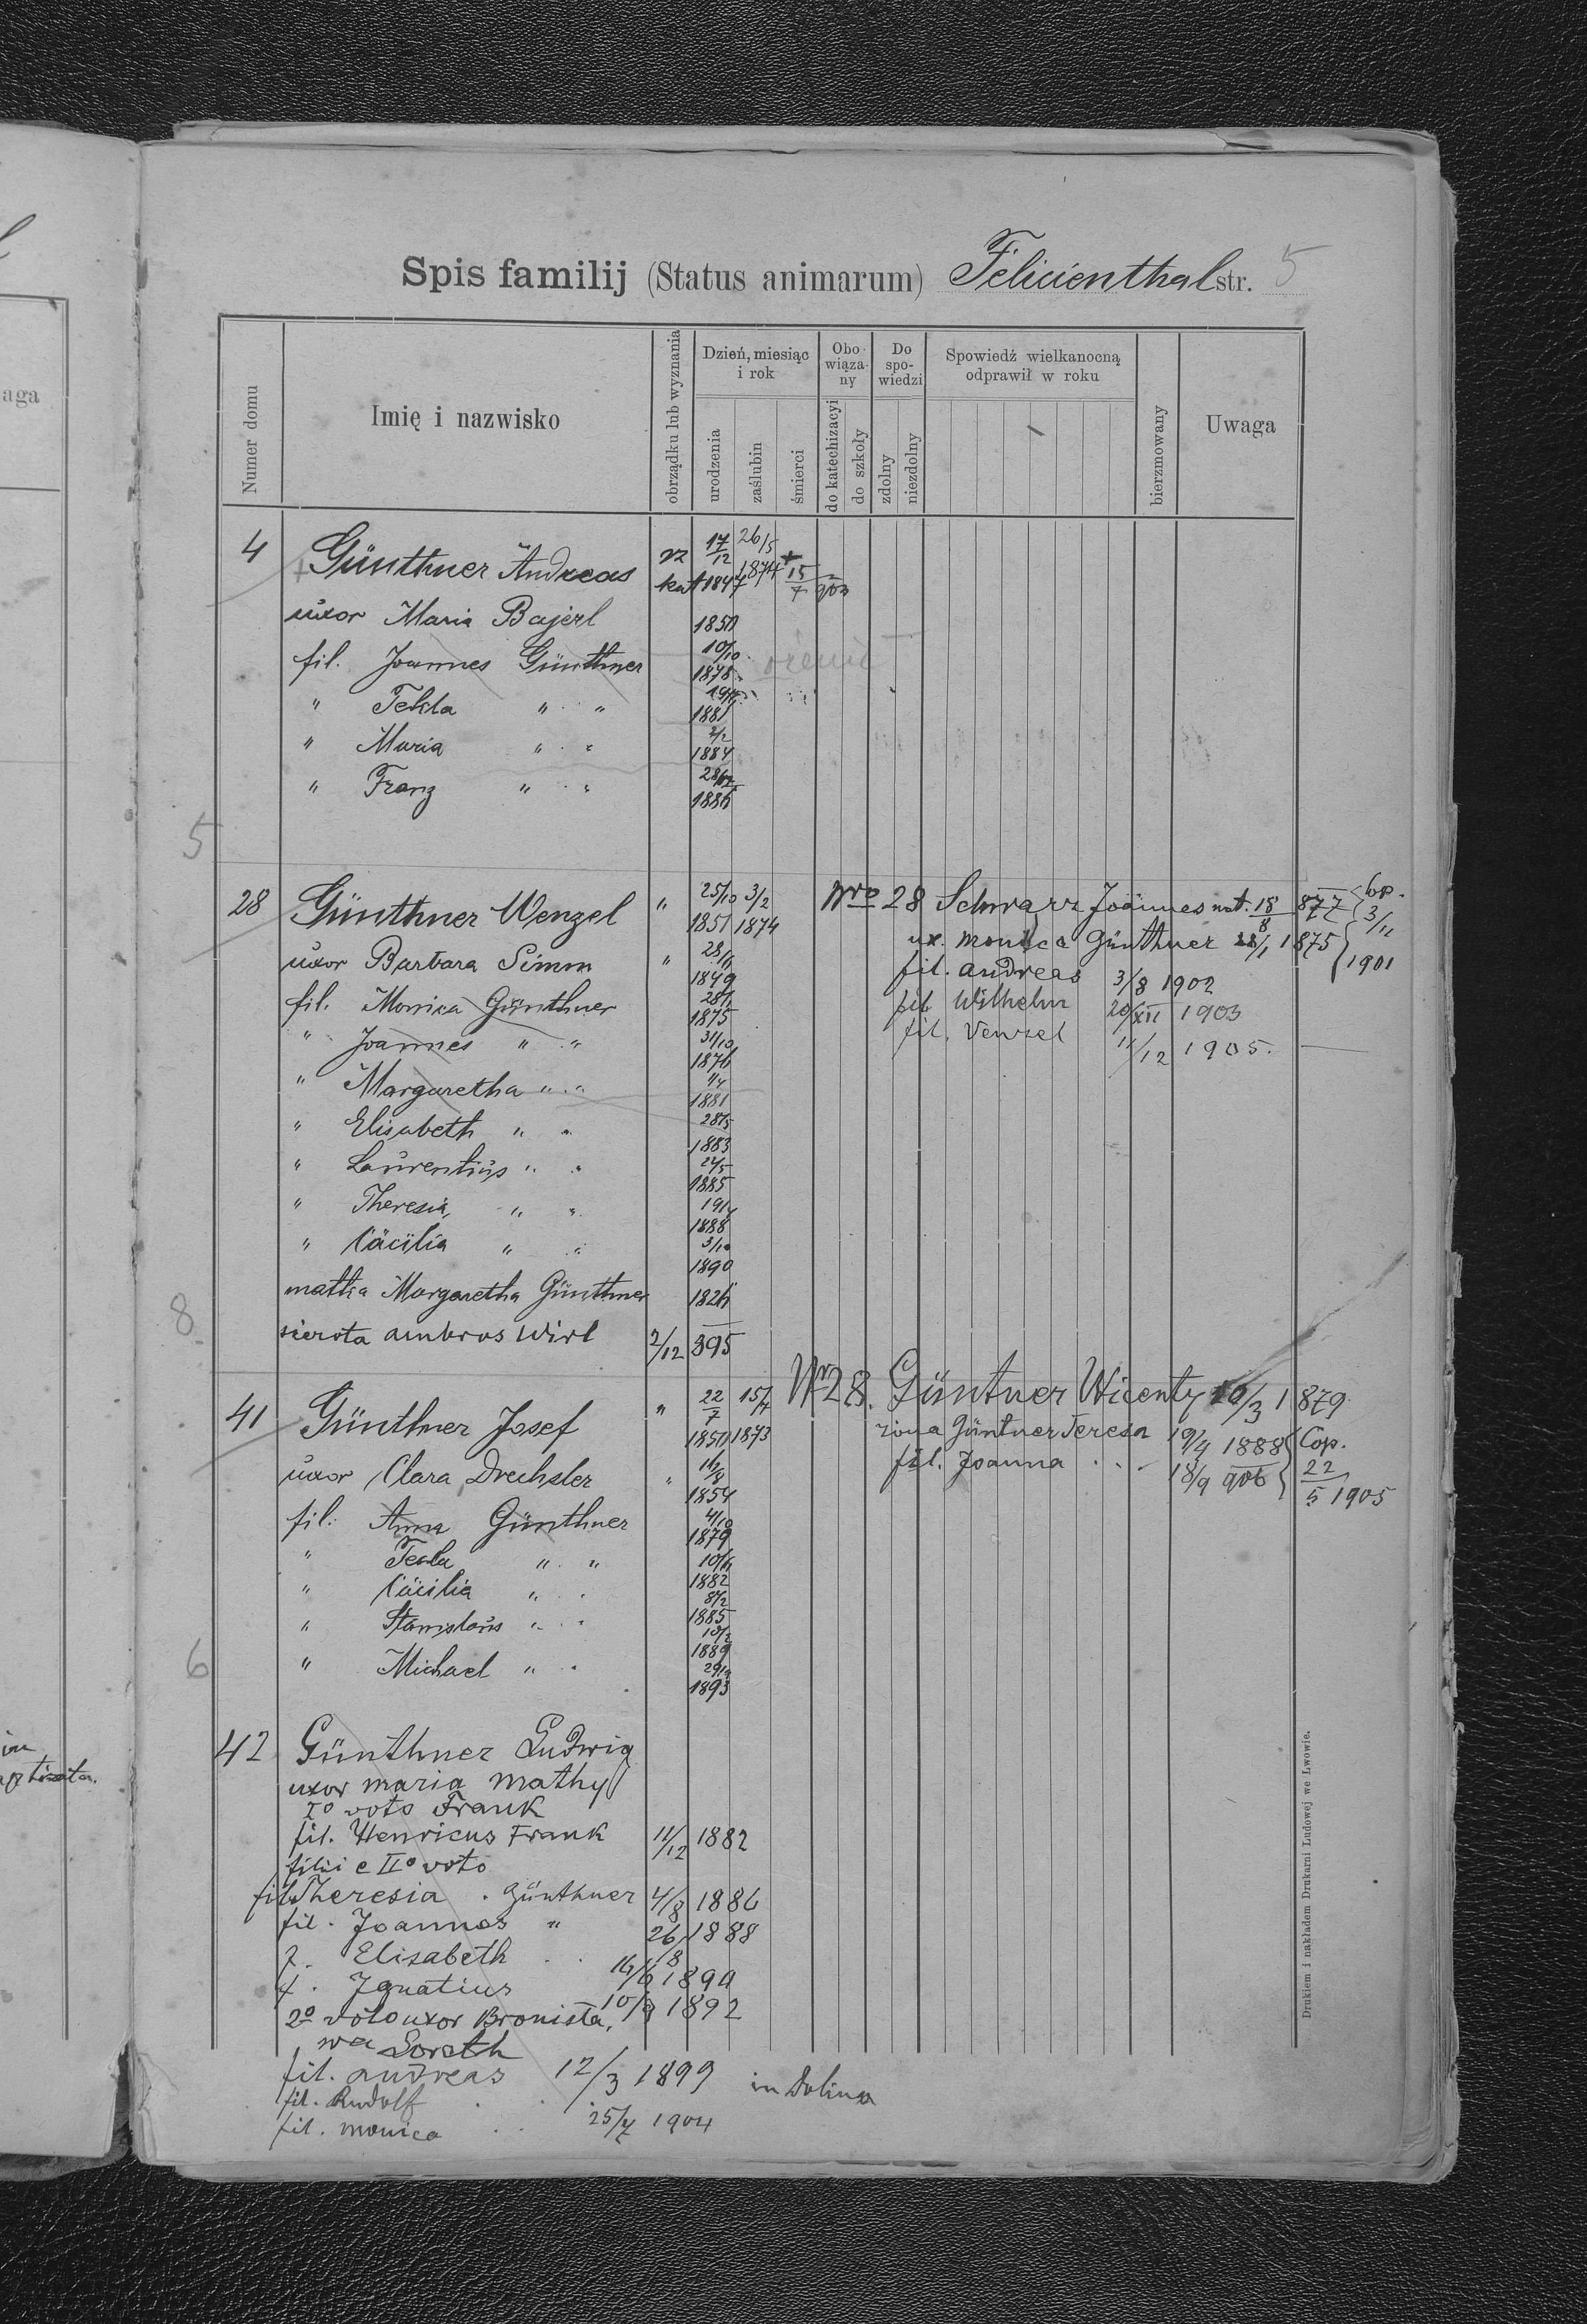 Spis familij (Status animarum) Felicienthal str. 5
Numer domu
Imię i nazwisko
obrządku lub wyznania
Dzień, miesiąc i rok
urodzenia
zaślubin
śmierci
Obowiąza-ny
do katechizacyi
do szkoły
Do spo-wiedzi
zdolny
niezdolny
Spowiedź wielkanocną odprawił w roku
bierzmowany
Uwaga
4 Günthner Andreas rz kat 17/12 1847 26/5 1874 + 15/7 903
uxor Maria Bajerl 1850
fil. Joannes Günthner 10/10 1878
" Tekla " " 1881
" Maria " " 2/2 1884
" Franz " " 1886
5
28 Günthner Wenzel " 25/10 1851 3/2 1874
uxor Barbara Simm " 1849
fil. Monica Günthner 28/1 1875
" Joannes " " 31/10 1876
" Margaretha " " 1881
" Elisabeth " " 28/5 1883
" Laurentius " " 24/5 1885
" Theresia " " 19/4 1888
" Cäcilia " " 3/10 1890
Margaretha Günthner 1826
8
sierota Ambros Wirl 2/12 895
Nro 28 Schwarz Joannes nat. 18/8 877 Cop. 3/11 1901
ux. Monica Günthner 28/1 1875
fil. Andreas 3/8 1902
fil. Wilhelm 20/XII 1903
fil. Venzel 11/12 1905.
Nr 28. Güntner Wicenty 10/3 1879
żona Güntner Teresa 19/4 1888 Cop. 22/5 1905
fil. Joanna 18/9 906
41 Günthner Josef " 22/7 1850 1873
uxor Clara Drechsler " 16/8 1854
fil. Anna Günthner 4/10 1879
" Tecla " " 1882
" Cäcilia " " 8/2 1885
" Stanislaus " " 10/2 1889
6
" Michael " " 1893
42 Günthner Ludwig
uxor Maria Mathy
I° voto Frank
fil. Henricus Frank 11/12 1882
filii e II° voto
fil. Theresia Günthner 4/8 1886
fil. Joannes " 1888
f. Elisabeth
f. Ignatius
2° voto uxor Bronisła, 10/9 1892
wa Loreth
fil. Andreas 12/3 1899 in Dolina
fil. Rudolf
fil. Monica 25/7 1904
Drukiem i nakładem Drukarni Ludowej we Lwowie.
aga